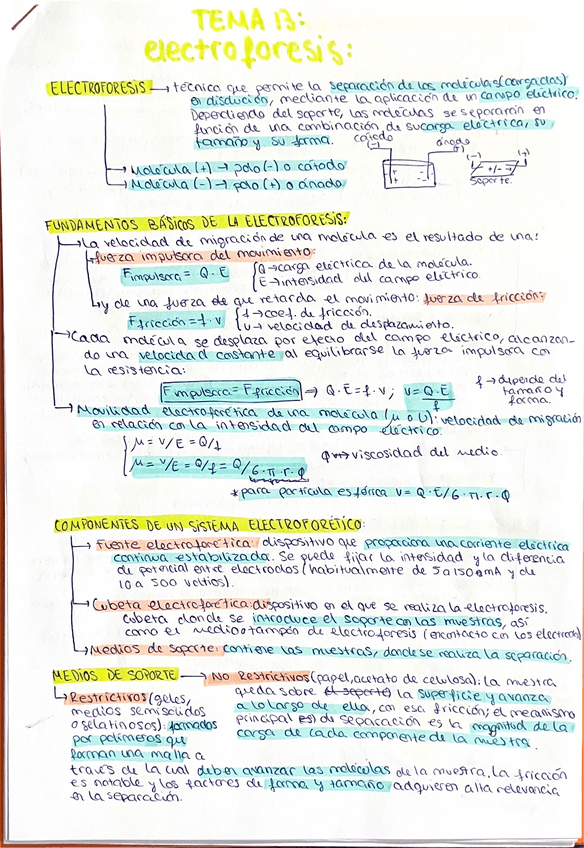 TEMA 13:
electroforesis:
ELECTROFORESIS → técnica que permite la separación de las moléculas (cargadas)
en disolución, mediante la aplicación de un campo eléctrico.
Dependiendo del soporte, las moléculas se separarán en
función de una combinación de su carga eléctrica, su
tamaño y su forma.
cátodo (-)
ánodo (+)
(-) (+)
+/-
soporte.
→ Molécula (+) → polo (-) o cátodo
→ Molécula (-) → polo (+) o ánodo
FUNDAMENTOS BÁSICOS DE LA ELECTROFORESIS:
→ La velocidad de migración de una molécula es el resultado de una:
fuerza impulsora del movimiento:
Fimpulsora = Q · E
Q → carga eléctrica de la molécula.
E → intensidad del campo eléctrico.
→ y de una fuerza de que retarda el movimiento: fuerza de fricción:
Ffricción = f · v
f → coef. de fricción.
v → velocidad de desplazamiento.
→ Cada molécula se desplaza por efecto del campo eléctrico, alcanzan-
do una velocidad constante al equilibrarse la fuerza impulsora con
la resistencia:
Fimpulsora = Ffricción ⇒ Q · E = f · v ; v = Q · E / f
f → depende del
tamaño y
forma.
→ Movilidad electroforética de una molécula (μ o U): velocidad de migración
en relación con la intensidad del campo eléctrico.
μ = v/E = Q/f
μ = v/E = Q/f = Q/6 · π · r · φ
φ → viscosidad del medio.
* para partícula esférica v = Q · E/6 · π · r · φ
COMPONENTES DE UN SISTEMA ELECTROFORÉTICO:
→ Fuente electroforética: dispositivo que proporciona una corriente eléctrica
continua estabilizada. Se puede fijar la intensidad y la diferencia
de potencial entre electrodos (habitualmente de 5 a 150 mA y de
10 a 500 voltios).
→ Cubeta electroforética: dispositivo en el que se realiza la electroforesis.
cubeta donde se introduce el soporte con las muestras, así
como el medio tampón de electroforesis (en contacto con los electrodos)
→ Medios de soporte: contiene las muestras, donde se realiza la separación.
MEDIOS DE SOPORTE → No Restrictivos (papel, acetato de celulosa): la muestra
queda sobre el soporte) la superficie y avanza
a lo largo de ella, con esa fricción; el mecanismo
principal es) de separación es la magnitud de la
carga de cada componente de la muestra.
→ Restrictivos (geles,
medios semisólidos
o gelatinosos): formados
por polímeros que
forman una malla a
través de la cual deben avanzar las moléculas de la muestra. La fricción
es notable y los factores de forma y tamaño adquieren alta relevancia
en la separación.